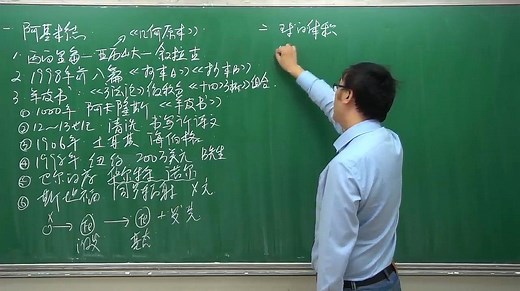 一 阿基米德 《几何原本》
1. 西西里岛—亚历山大—叙拉古
2. 1998年前八篇《抄本A》《抄本B》
3. 羊皮书:《方法论》《十四巧板》组合.
① 1000年 阿卡 《羊皮书》
② 12~13世纪 清洗 书写祈祷文
③ 1906年 土耳其 海伯格
④ 1998年 纽约 200万美元 B先生
⑤ 巴尔的摩 华尔特 诺尔
⑥ 斯坦福 同步辐射 X光
X → Fe → Fe + 荧光
激发
二 球的体积